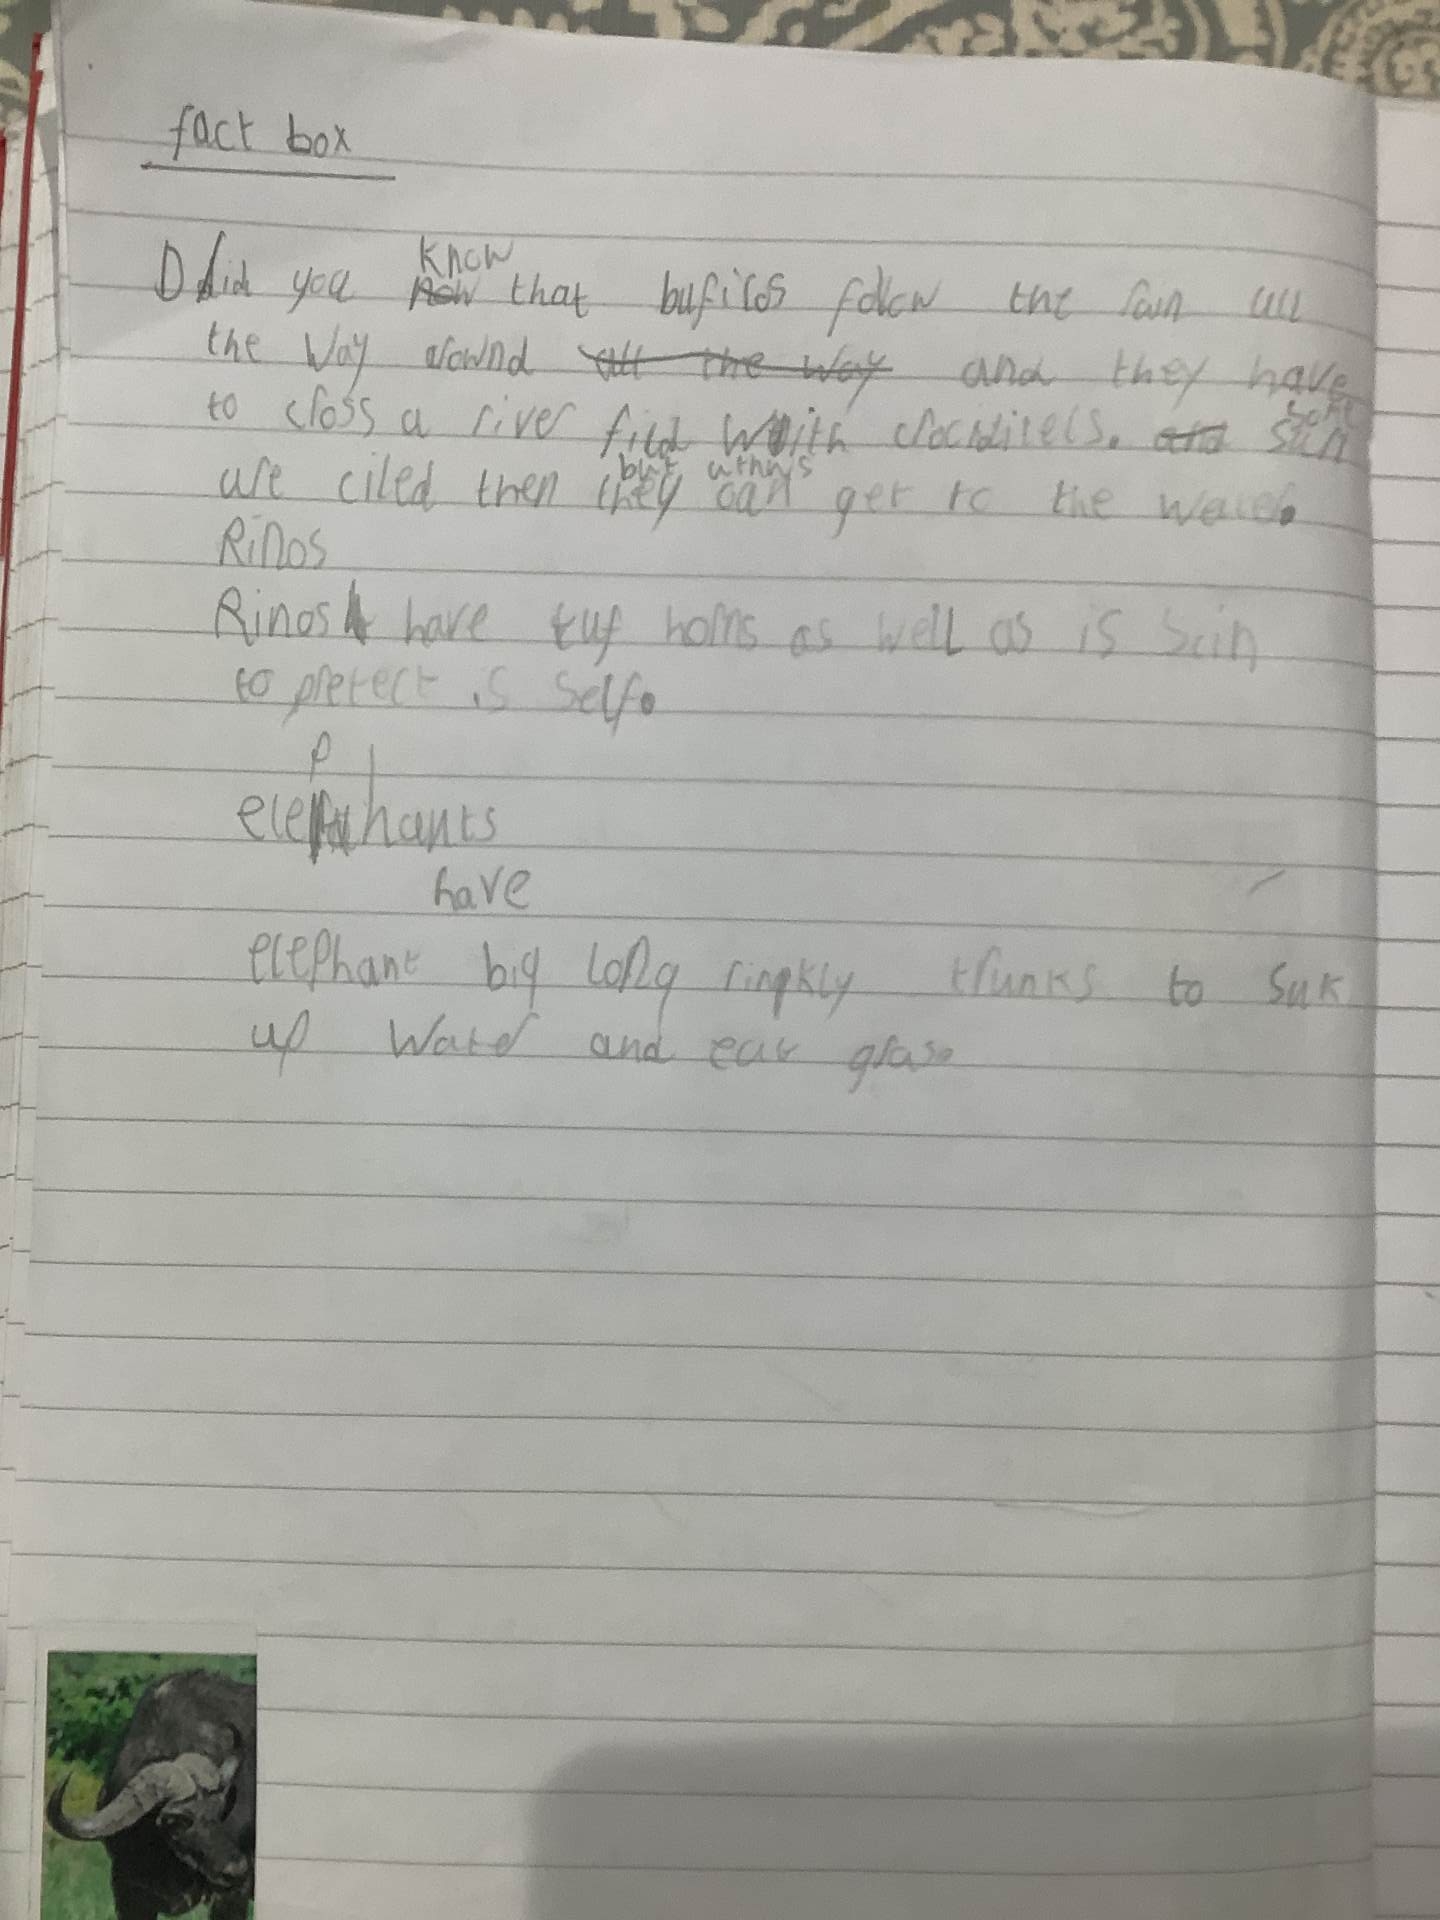 fact box
Did you know that bufilos folow the rain all
the way arownd all the way and they have
to cross a river fild with crocidilels. and some
are ciled then but uthus can get to the water.
Rinos
Rinos have tuf horns as well as is scin
to pretect is self.
elephants
have
elephant big long ringkly trunks to suk
up water and eat grass